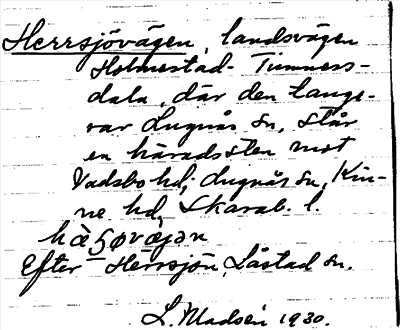 Herrsjövägen, landsvägen
Holmestad - Timmers-
dala, där den tange-
rar Lugnås sn, står
en häradssten mot
Vadsbo hd, Lugnås sn, Kin-
ne hd, Skarab. l.
hæ̀ʂøvæjən
Efter Herrsjön, Låstad sn.
L. Madsén 1930.